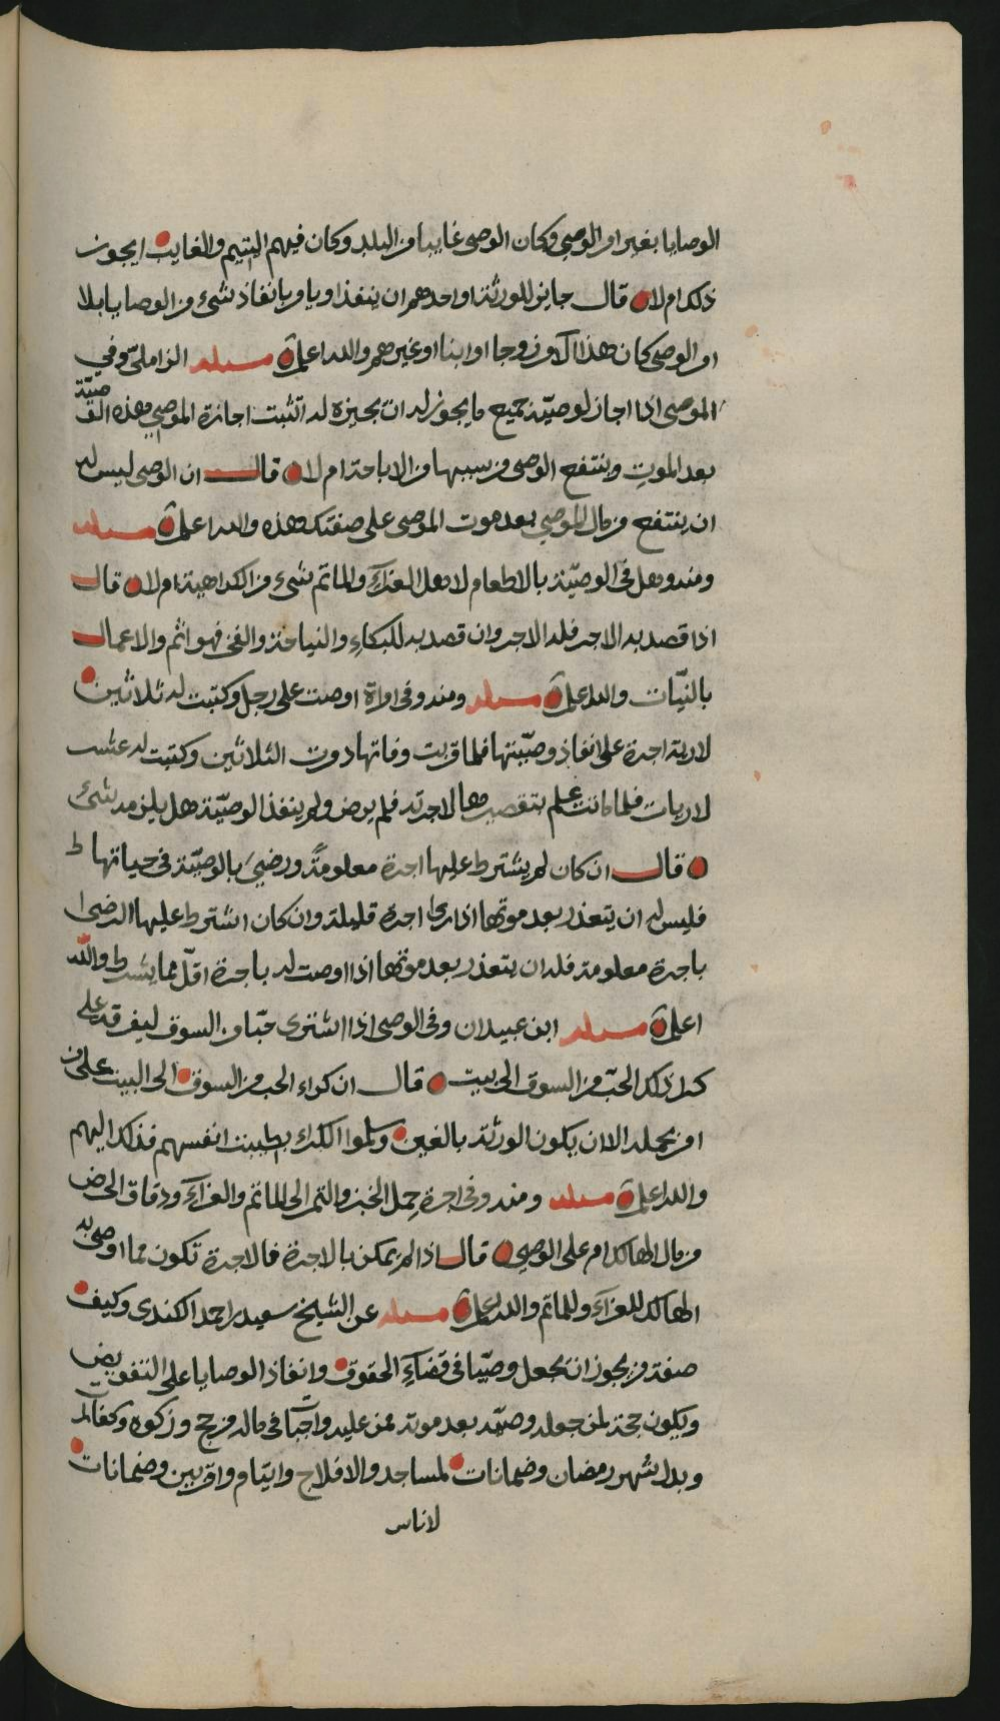 الوصايا بغير امر الوصي وكان الوصي غايبا من البلد وكان فيهم اليتيم والغايب ايجوز
ذلك ام لا قال جايز للورثة او احدهم ان ينفذ او يامر بانفاذ شيء من الوصايا بلا
امر الوصي كان هذا الآمر زوجا او ابنا او غيرهم والله اعلم مسئله الزاملي وفي
الموصي اذا اجاز لوصيّه جميع ما يجوز له ان يجيزه له اتثبت اجازة الموصي هذه لوصيّه
بعد الموت وينتفع الوصي من سببها من الاباحة ام لا قال ان الوصي ليس له
ان ينتفع من مال الموصي بعد موت الموصي على صفتك هذه والله اعلم مسئله
ومنه وهل في الوصيّة بالاطعام لاهل العزاء والماتم شيء من الكراهية ام لا قال
اذا قصد به الاجر فله الاجر وان قصد به للبكاء والنياحة والفخر فهو اثم والاعمال
بالنيّات والله اعلم مسئله ومنه وفي امراة اوصت على رجل وكتبت له ثلاثين
لارية اجرة على انفاذ وصيّتها فلما قربت وفاتها دون الثلاثين وكتبت له عشر
لاريات فلما ماتت علم بتقصيرها لاجرته فلم يرض ولم ينفذ الوصيّة هل يلزمه شيء
قال ان كان لم يشترط عليها اجرة معلومة ورضي بالوصيّة في حياتها
فليس له ان يتعذر بعد موتها اذا رءا اجرة قليلة وان كان اشترط عليها الرضى
باجرة معلومة فله ان يتعذر بعد موتها اذا اوصت له باجرة اقلّ مما يشرط والله
اعلم مسئله ابن عبيدان وفي الوصي اذا اشترى حبّا من السوق ليفرقه على
كراء ذلك الحبّ من السوق الى بيت قال ان كراء الحب من السوق الى البيت على من
امر بحمله الا ان يكون الورثة بالغين وسلموا الكراء بطيبت انفسهم فذلك اليهم
والله اعلم مسئله ومنه وفي اجرة حمل الخبز والتمر الى الماتم والعزاء ودقاق الحرض
من مال الهالك ام على الوصي قال اذا لم يمكن بالاجرة فالاجرة تكون مما اوصى به
الهالك للعزاء وللماتم والله اعلم مسئله عن الشيخ سعيد بن احمد الكندي وكيف
صفة من يجوز ان يجعل وصيّا في قضاء الحقوق وانفاذ الوصايا على التفويض
ويكون حجة لمن جعله وصيّه بعد موته ممن عليه واجبات في ماله من حج وزكوه وكفاله
وبدل شهر رمضان وضمانات لمساجد والافلاج وايتام واقربين وضمانات
لاناس